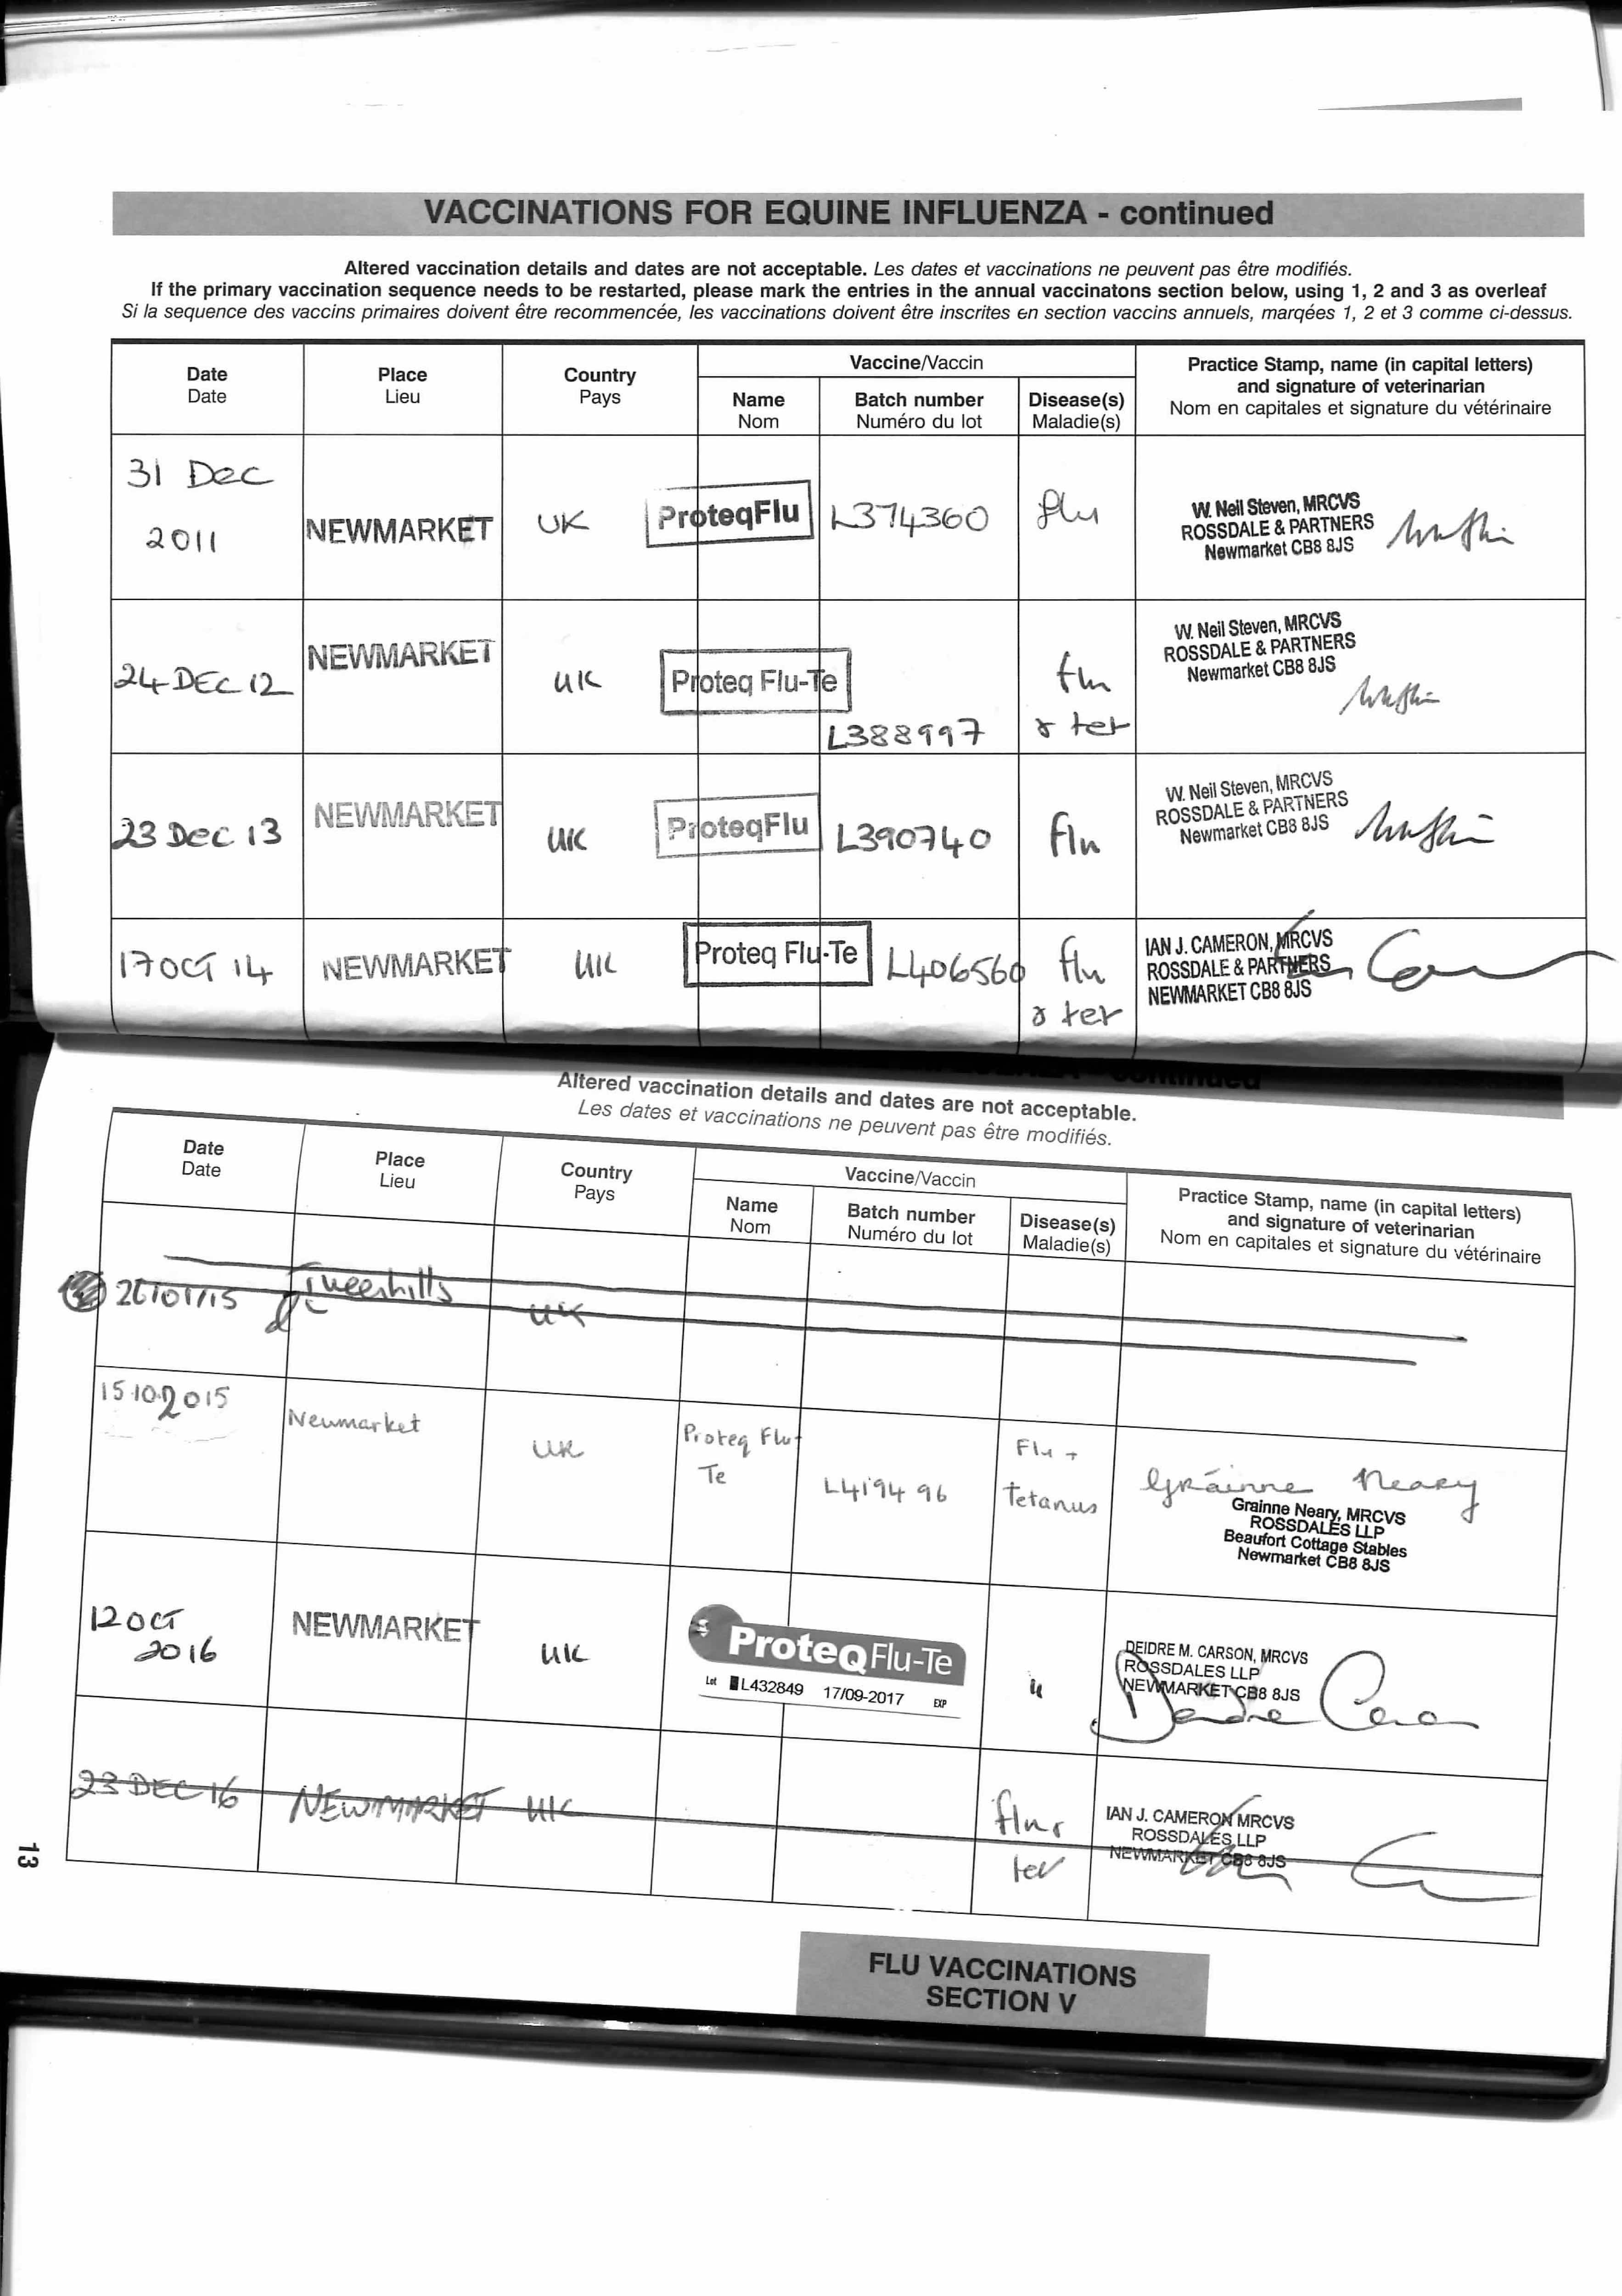 VACCINATIONS FOR EQUINE INFLUENZA - continued
Altered vaccination details and dates are not acceptable. Les dates et vaccinations ne peuvent pas être modifiés.
If the primary vaccination sequence needs to be restarted, please mark the entries in the annual vaccinatons section below, using 1, 2 and 3 as overleaf
Si la sequence des vaccins primaires doivent être recommencée, les vaccinations doivent être inscrites en section vaccins annuels, marqées 1, 2 et 3 comme ci-dessus.
Date Place Country Vaccine/Vaccin Practice Stamp, name (in capital letters)
Date Lieu Pays and signature of veterinarian
Name Batch number Disease(s) Nom en capitales et signature du vétérinaire
Nom Numéro du lot Maladie(s)
31 Dec
2011 NEWMARKET UK ProteqFlu L374360 flu W. Neil Steven, MRCVS
ROSSDALE & PARTNERS
Newmarket CB8 8JS
24 DEC 12 NEWMARKET UK Proteq Flu-Te L388997 flu
& tet
W. Neil Steven, MRCVS
ROSSDALE & PARTNERS
Newmarket CB8 8JS
23 Dec 13 NEWMARKET UK ProteqFlu L390740 Flu W. Neil Steven, MRCVS
ROSSDALE & PARTNERS
Newmarket CB8 8JS
17 OCT 14 NEWMARKET UK Proteq Flu-Te L406560 flu
& tet
IAN J. CAMERON, MRCVS
ROSSDALE & PARTNERS
NEWMARKET CB8 8JS
continued
Altered vaccination details and dates are not acceptable.
Les dates et vaccinations ne peuvent pas être modifiés.
Date Place Country Vaccine/Vaccin Practice Stamp, name (in capital letters)
Date Lieu Pays and signature of veterinarian
Name Batch number Disease(s) Nom en capitales et signature du vétérinaire
Nom Numéro du lot Maladie(s)
UK
15.10.2015 Newmarket UK Proteq Flu-
Te
L419496 Flu +
Tetanus
Gráinne Neary
Grainne Neary, MRCVS
ROSSDALES LLP
Beaufort Cottage Stables
Newmarket CB8 8JS
12 OCT
2016 NEWMARKET UK ProteqFlu-Te
Lot L432849 17/09-2017 EXP
"
DEIDRE M. CARSON, MRCVS
ROSSDALES LLP
NEWMARKET CB8 8JS
Deirdre Carson
23 DEC 16 NEWMARKET UK flu &
tet
IAN J. CAMERON MRCVS
ROSSDALES LLP
NEWMARKET CB8 8JS
13
FLU VACCINATIONS
SECTION V